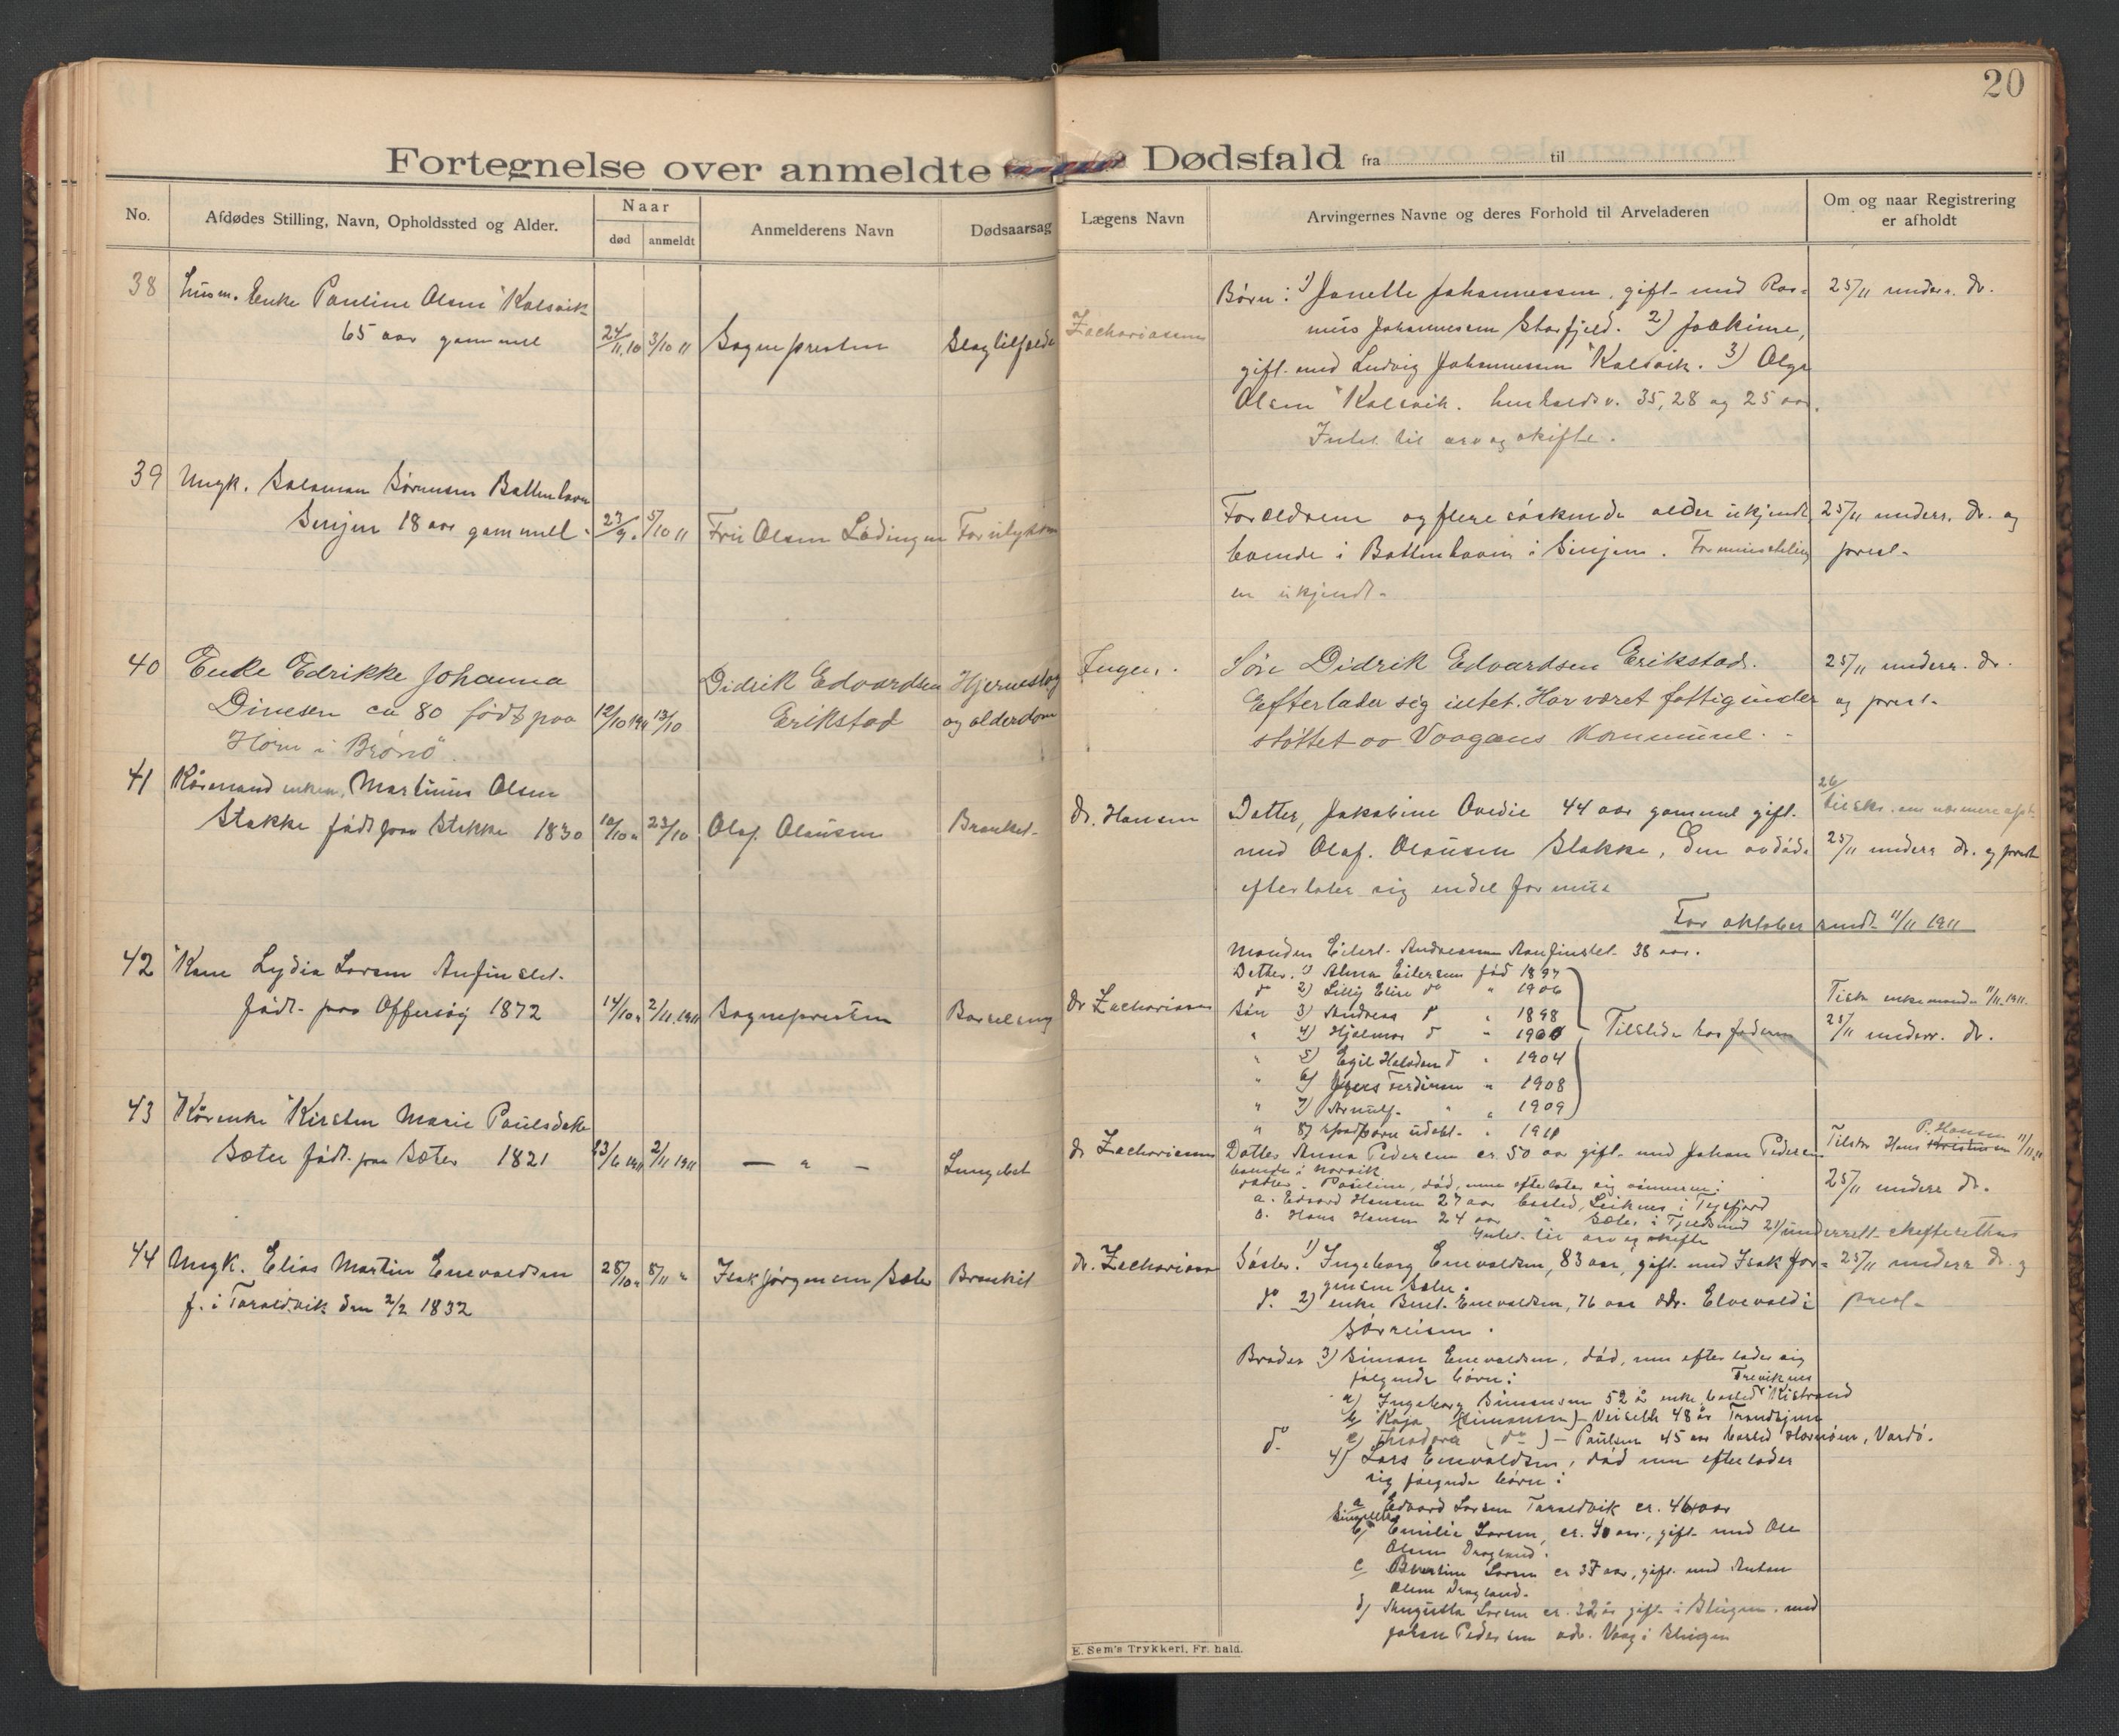 20
Fortegnelse over anmeldte Dødsfald fra til
No.
Afdødes Stilling, Navn, Opholdssted og Alder.
Naar
død anmeldt
Anmelderens Navn
Dødsaarsag
Lægens Navn
Arvingernes Navne og deres Forhold til Arveladeren
Om og naar Registrering
er afholdt
38 Husm. Enke Pauline Olsen Kalsvik
65 aar gammel 3/10 11 Sognepresten Slagtilfælde Zachariasen
Børn: 1) Janette Johannessen, gift med Ras=
mus Johannessen Storfjeld. 2) Joakime,
gift med Ludvig Johannessen Kalsvik. 3) Olga
Olsen Kalsvik. henholdsv. 35, 28 og 25 aar.
Intet til arv og skifte.
25/11 underr. dr.
39 Ungk. Salamon Sørensen Ballenhavn
Senjen 18 aar gammel. 23/9 5/10 11 Olsen Lødingen
Forældrene og flere søskende alder ukjendt,
boende i Ballenhavn i Senjen.
er ukjendt.
25/11 underr. dr. og
prest.
40 Enke Edrikke Johanna
Dinesen ca 80 født paa
Horn i Brønø
12/10 1911 13/10
Didrik Edvardsen
Erikstad
Hjerneslag
og alderdom
Ingen.
Søn Didrik Edvardsen Erikstad.
Efterlader sig intet. Har været fattigunder
støttet av Vaagans Kommune.
25/11 underr. dr.
og prest.
41 Martinus Olsen
Stakke født paa Stakke 1830 10/10 23/10 Olaf Olausen Dr. Hansen
Datter, Jakobine Ovedie 44 aar gammel gift
med Olaf. Olausen Stakke, Den avdøde
efterlater sig endel formue
25/11 underr dr. og prest
For oktober sendt 11/11 1911
42 Kone Lydia Larsen
født paa Offersøy 1872 14/10 2/11 1911 Sognepresten Barselseng dr Zachariasen
Manden Eilert Andreassen 38 aar.
Døther. 1) Alma Eilersen fød 1897
do 2) Lilly Elise do " 1906
Søn 3) Andreas " 1898
" 4) Hjalmar " 1900
" 5) Egil Halvdan " 1904
" 6) " 1908
" 7) Arnulf " 1909
" 8) Spædbarn udøbt " 1911
Tilstede hos faderen
11/11 1911.
25/11 underr. dr.
43 Kårenke Kirsten Marie Paulsdatter
Sæter født paa Sæter 1821 23/6 1911 2/11 1911 — " — dr Zachariasen
Datter Anna Pedersen er 50 aar gift med Johan Pedersen
boende i Narvik
datter. Pauline, død, men efterlater sig sønnerne:
a. Edvard Hansen 27 aar bosted, Leiknes i Tysfjord
b. Hans Hansen 24 aar " Sæter i Tjeldsund
Intet til arv og skifte
P. Hansen
Tilskr Hans Kristensen
25/11 underr dr.
44 Ungk. Elias Martin Enevoldsen
f. i Taraldsvik den 2/2 1832 28/10 8/11 Isak Jørgensen Sæter dr. Zachariasen
Søster. 1) Ingeborg Enevoldsen, 83 aar, gift med Isak Jør=
gensen Sæter.
do. 2) enke Berit Enevoldsen, 76 aar adr. Elvevold i
Sørreisen.
Broder 3) Simon Enevoldsen, død, men efterlader sig
følgende børn:
a) Ingeborg Simonsen 52 år enke bosted Kistrand
b) Kaja (Simonsen) 48 år Trondhjem
c) Theodora (do) – Paulsen 45 aar bosted Hornøen, Vardø.
do 4) Lars Enevoldsen, død men efterlader
sig følgende børn:
a Edvard Larsen Taraldsvik er. 46 aar
b) Emilie Larsen, er. 40 aar, gift med Ole
Olsen Dragland.
c Larsen er 37 aar, gift med Anton
Olsen Dragland.
d) Augusta Larsen er. 32 år gift i med
Johan Pedersen adr. Vaag i
25/11 underr dr. og
prest
E. Sem's Trykkeri, Fr. hald.